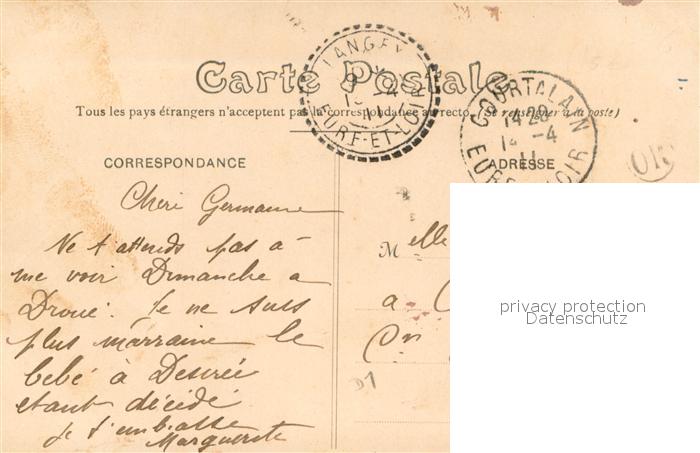 Carte Postale
Tous les pays étrangers n'acceptent pas la correspondance au recto (Se renseigner à la poste)
CORRESPONDANCE
ADRESSE
LANGEY
EURE-ET-LOIR
COURTALAIN
14 28
-4
11
EURE LOIR
OR
Cheri Germaine
Ne t attends pas à
me voir Dimanche a
Droué. Je ne suis
plus marraine le
bébé à Desirée
etant décédé
Je t'embrasse
Marguerite
Melle
a
Con
D1
privacy protection
Datenschutz